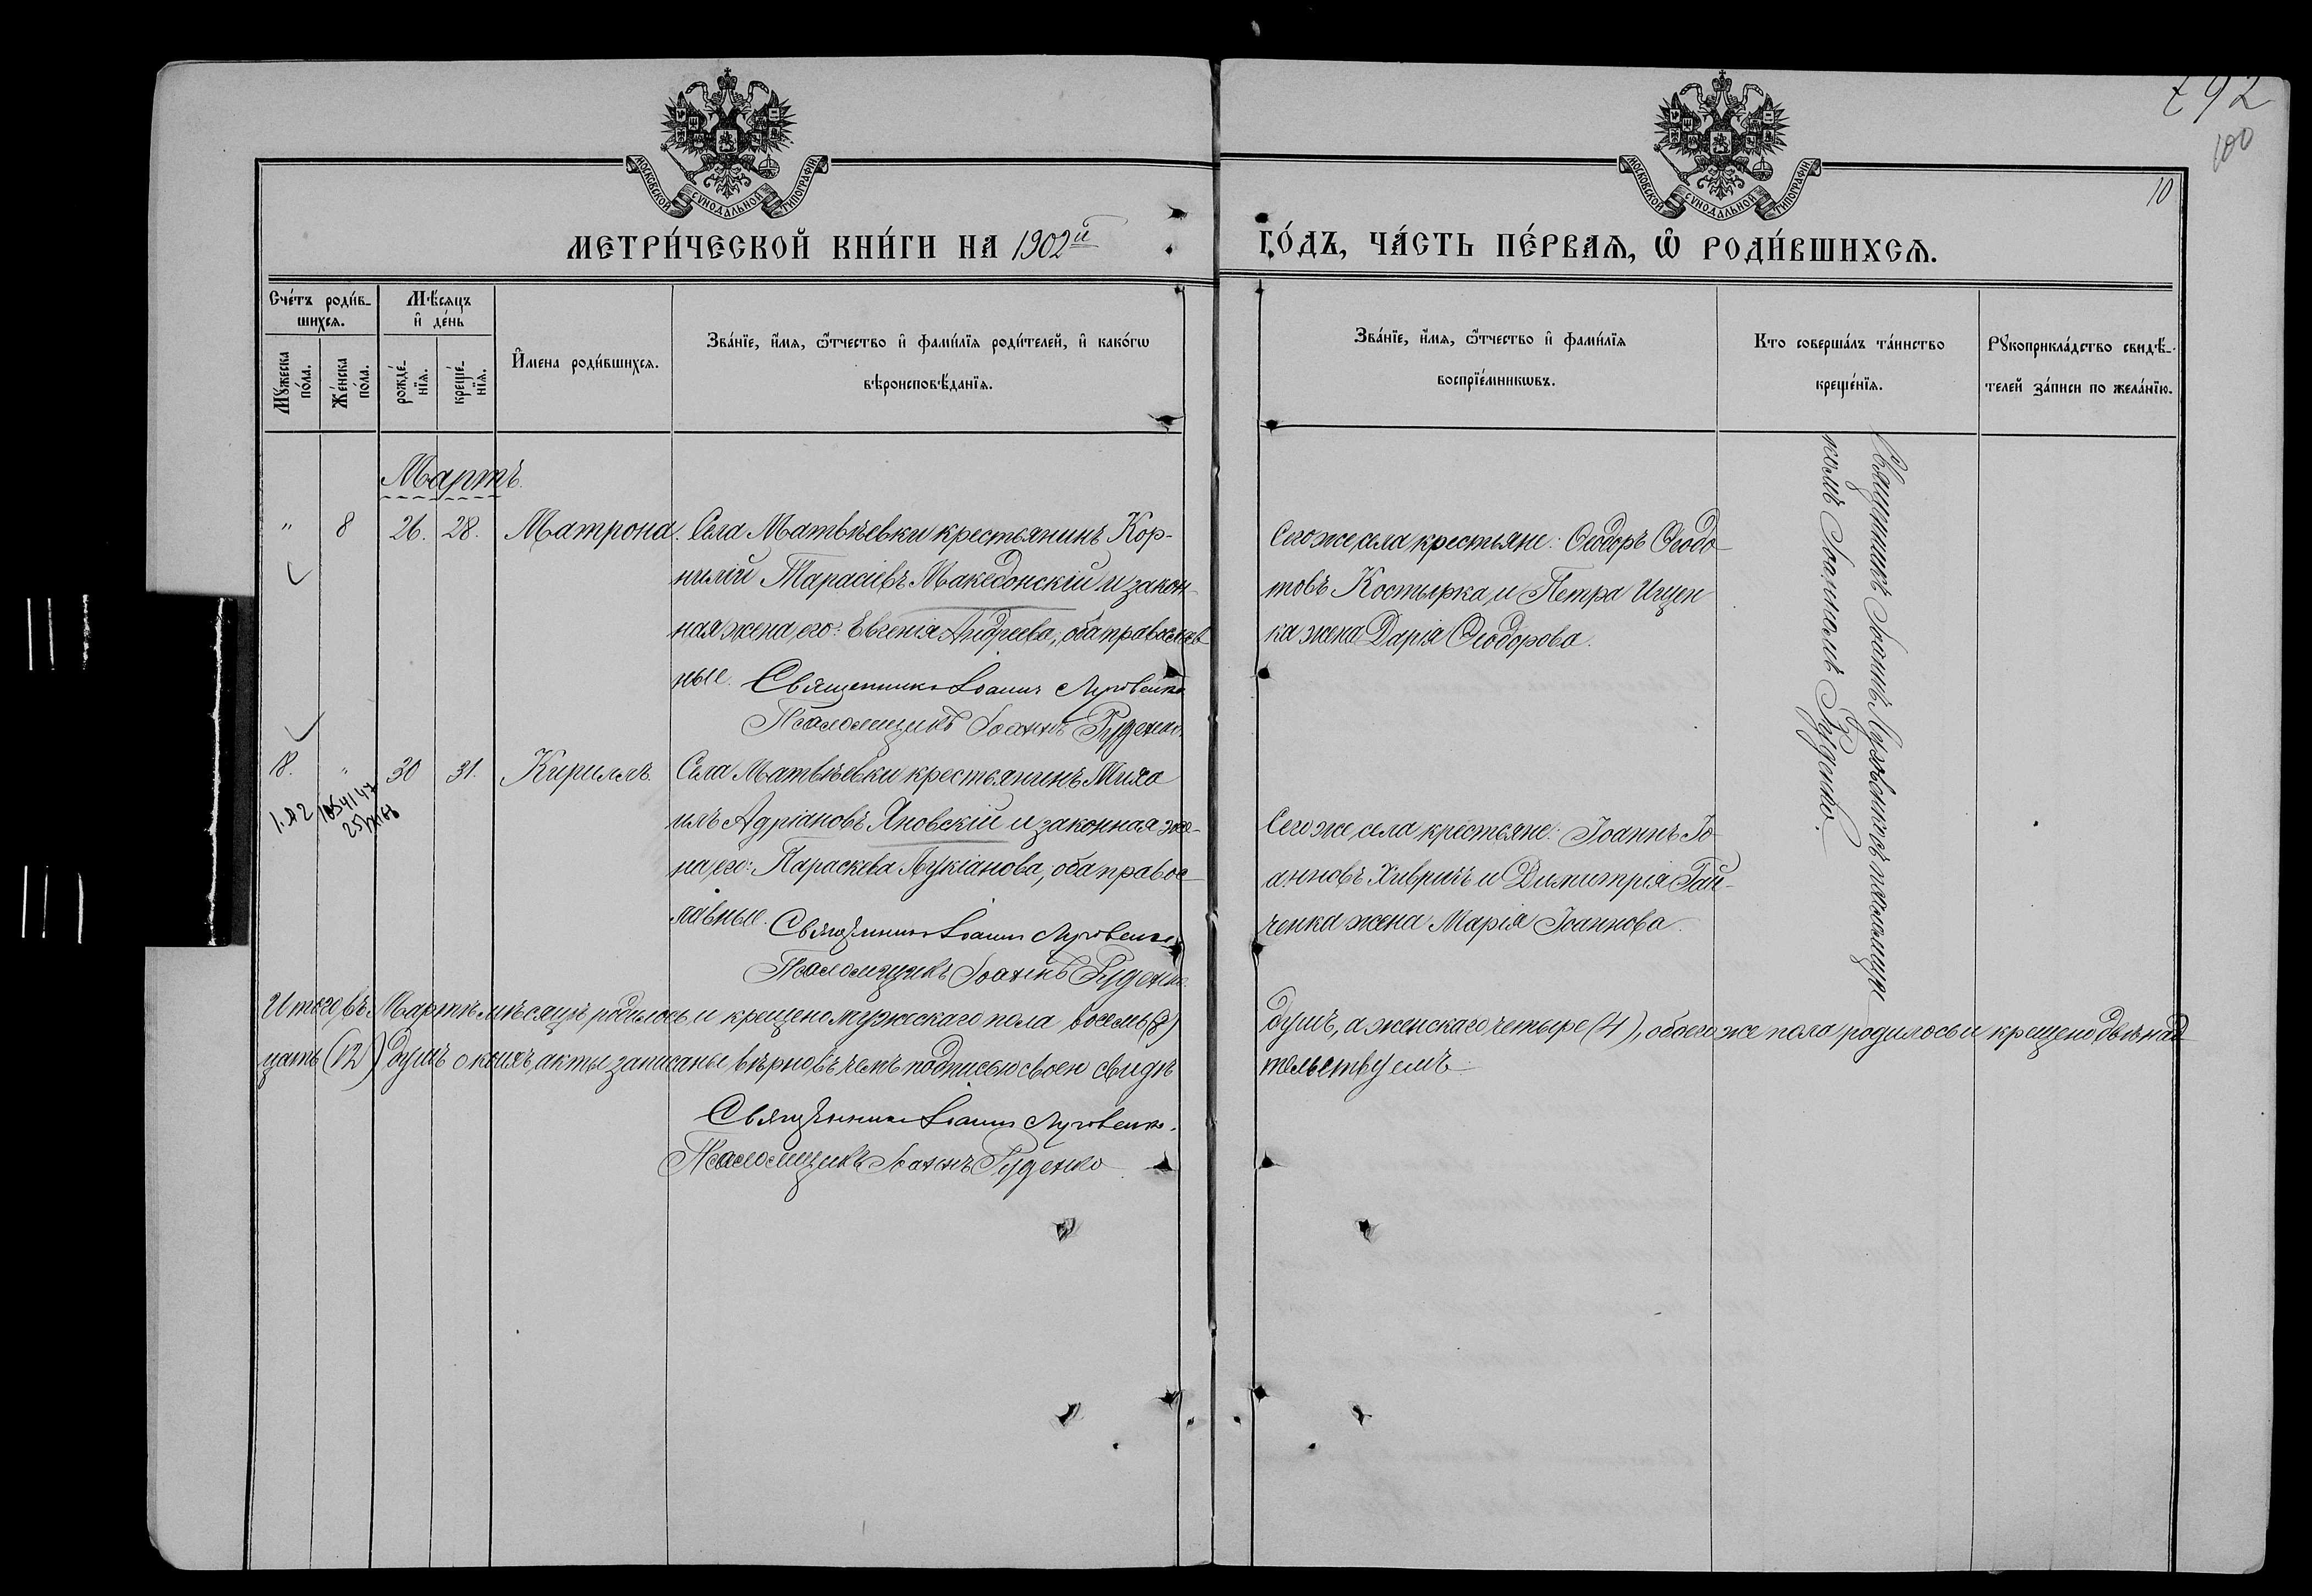 792
100
10
МОСКОВСКОЙ СѴНОДАЛЬНОЙ ТИПОГРАФІИ
МОСКОВСКОЙ СѴНОДАЛЬНОЙ ТИПОГРАФІИ
МЕТРИ́ЧЕСКОЙ КНИ́ГИ НА 1902й
ГО́ДЪ, ЧА́СТЬ ПЕ́РВАѦ, Ѡ҆ РОДИ́ВШИХСѦ.
Сче́тъ роди́в-
шихсѧ.
Мꙋ́жеска
по́ла.
Же́нска
по́ла.
Мѣ́сѧцъ
и҆ де́нь
рожде́-
нїѧ.
креще́-
нїѧ.
И҆мена роди́вшихсѧ.
Зва́нїе, и҆́мѧ, ѻ҆́тчество и҆ фами́лїѧ роди́телей, и҆ како́гѡ
вѣроисповѣ́данїѧ.
Зва́нїе, и҆́мѧ, ѻ҆́тчество и҆ фами́лїѧ
воспрїе́мникѡвъ.
Кто соверша́лъ та́инство
креще́нїѧ.
Рꙋкоприкла́дство свидѣ́-
телей за́писи по жела́нїю.
Мартъ.
" 8 26. 28. Матрона. Села Матвѣевки крестьянинъ Кор-
нилій Тарасіевъ Македонскій и закон-
ная жена его: Евгенія Андреева, оба православ
ные. Священникъ Іоаннъ Луговенко
Псаломщикъ Іоаннъ Руденко.
Сего же села крестьяне: Ѳеодоръ Ѳеодо
товъ Костырка, и Петра Ищен
ка жена Дарія Ѳеодорова.
Священникъ Іоаннъ Луговенко съ псаломщи
комъ Іоанномъ Руденко.
18. " 30 31. Кириллъ. Села Матвѣевки крестьянинъ Миха
илъ Адріановъ Яновскій и законная же-
на его: Параскева Лукіанова, оба правос
лавные. Священникъ Іоаннъ Луговенко
Псаломщикъ Іоаннъ Руденко.
Сего же села крестьяне: Іоаннъ Іо
анновъ Хивричъ и Димитрія Гай-
ченка жена Марія Іоаннова.
Итого въ Мартѣ мѣсяцѣ родилось и крещено мужескаго пола восемь (8)
душъ, а женскаго четыре (4), обоего же пола родилось и крещено двѣнад
цать (12) душъ о коихъ акты записаны вѣрно въ чемъ подписью своею свидѣ
тельствуемъ.
Священникъ Іоаннъ Луговенко.
Псаломщикъ Іоаннъ Руденко